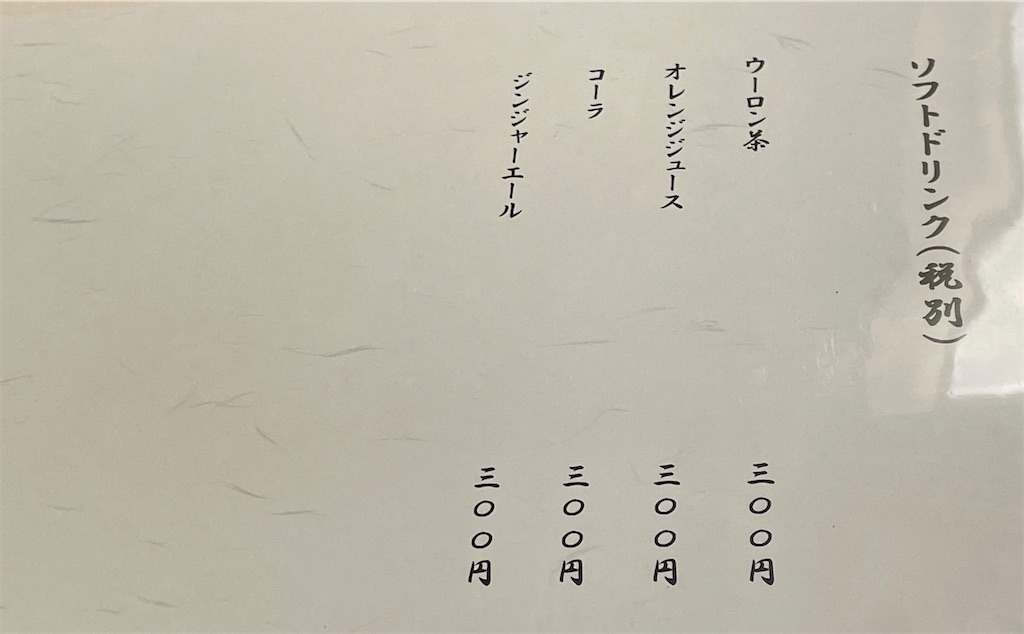 ソフトドリンク(税別)
ウーロン茶 三〇〇円
オレンジジュース 三〇〇円
コーラ 三〇〇円
ジンジャーエール 三〇〇円